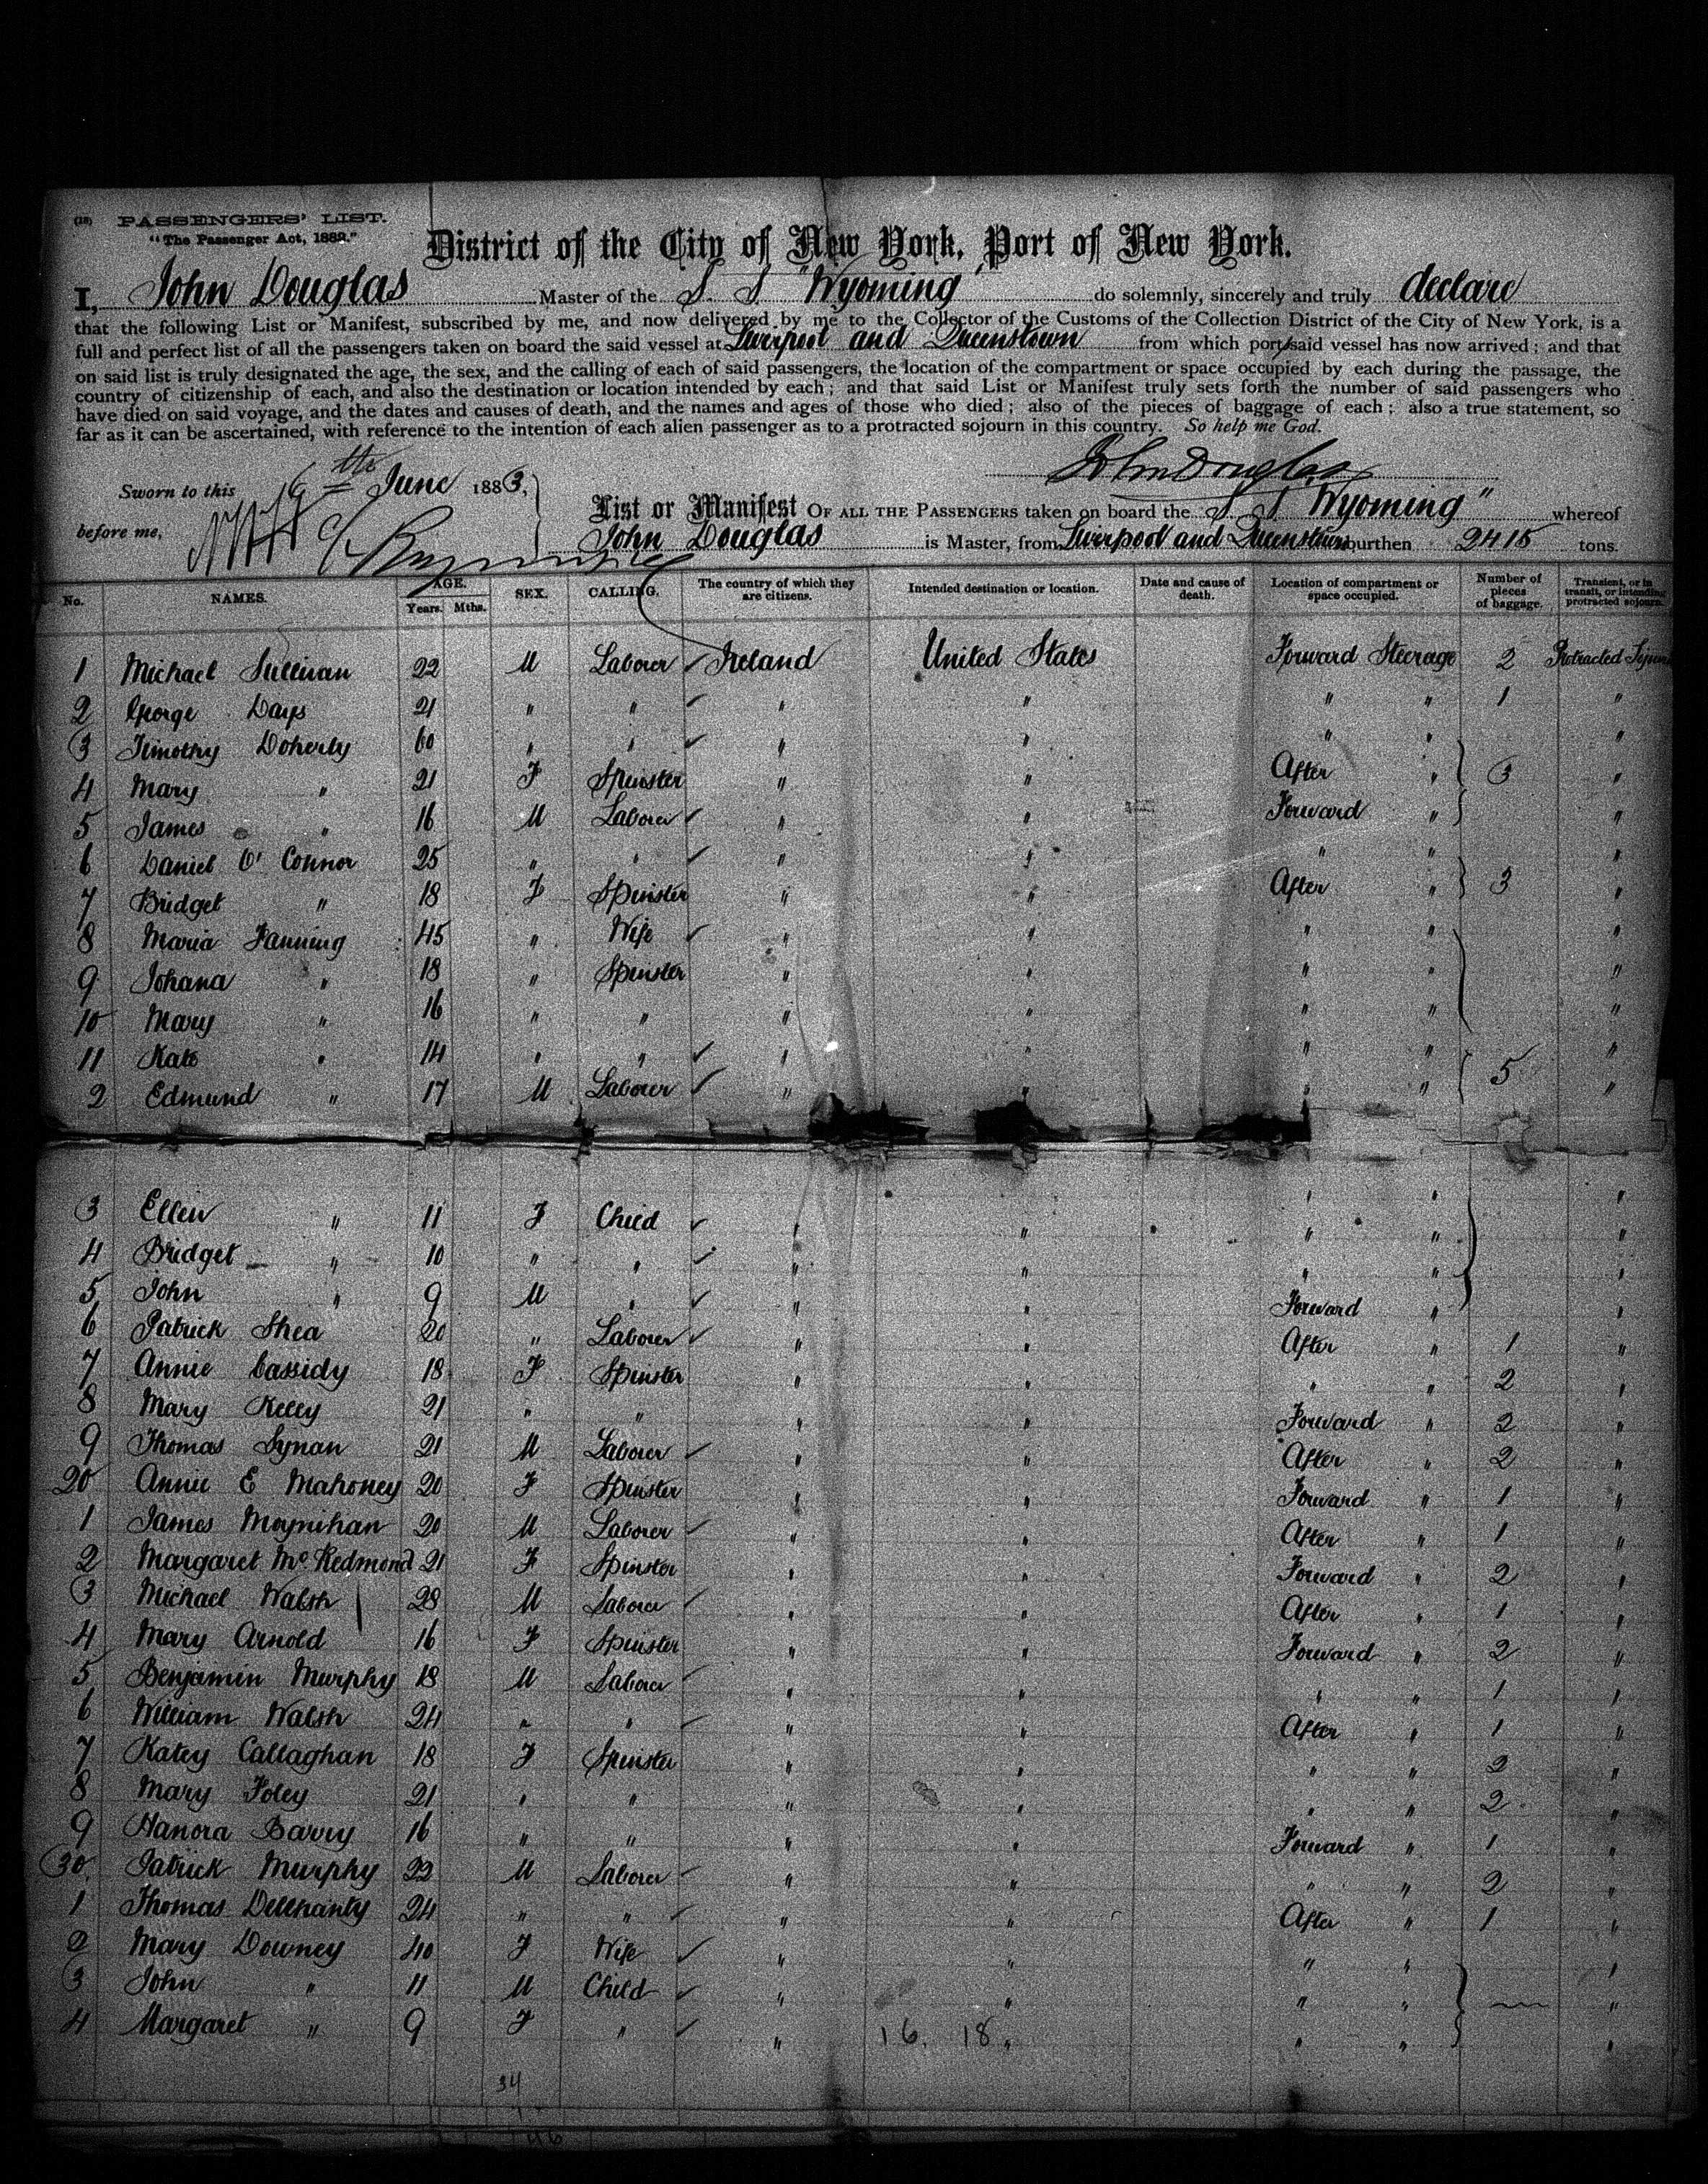 (18) PASSENGERS' LIST.
"The Passenger Act, 1882."
District of the City of New York, Port of New York.
I, John Douglas Master of the S. S "Wyoming" do solemnly, sincerely and truly declare
that the following List or Manifest, subscribed by me, and now delivered by me to the Collector of the Customs of the Collection District of the City of New York, is a
full and perfect list of all the passengers taken on board the said vessel at Liverpool and Queenstown from which port said vessel has now arrived; and that
on said list is truly designated the age, the sex, and the calling of each of said passengers, the location of the compartment or space occupied by each during the passage, the
country of citizenship of each, and also the destination or location intended by each; and that said List or Manifest truly sets forth the number of said passengers who
have died on said voyage, and the dates and causes of death, and the names and ages of those who died; also of the pieces of baggage of each; also a true statement, so
far as it can be ascertained, with reference to the intention of each alien passenger as to a protracted sojourn in this country. So help me God.
John Douglas
Sworn to this 6th June 1883,
before me,
List or Manifest OF ALL THE PASSENGERS taken on board the S S Wyoming" whereof
John Douglas is Master, from Liverpool and Queenstown burthen 2415 tons.
No. NAMES. AGE. Years. Mths. SEX. CALLING. The country of which they are citizens. Intended destination or location. Date and cause of death. Location of compartment or space occupied. Number of pieces of baggage. Transient, or in transit, or intending protracted sojourn.
1 Michael Sullivan 22 M Laborer Ireland United States Forward Steerage 2 Protracted
2 George Days 21 " " " " " " 1 "
3 Timothy Doherly 60 " " " " " " "
4 Mary " 21 F Spinster " " After " 3 "
5 James " 16 M Laborer " " Forward " "
6 Daniel O'Connor 25 " " " " " " "
7 Bridget " 18 F Spinster " " After " 3 "
8 Maria Fanning 45 " Wife " " " " "
9 Johana " 18 " Spinster " " " " "
10 Mary " 16 " " " " " " "
11 Kate " 14 " " " " " " "
2 Edmund " 17 M Laborer " " " " 5 "
3 Ellen " 11 F Child " " " " "
4 Bridget " 10 " " " " " " "
5 John " 9 M " " " " " "
6 Patrick Shea 20 " Laborer " " Forward " 1 "
7 Annie Cassidy 18 F Spinster " " After " 2 "
8 Mary Kelly 21 " " " " " " 2 "
9 Thomas Lynan 21 M Laborer " " Forward " 2 "
20 Annie E Mahoney 20 F Spinster " " After " 1 "
1 James Moynihan 20 M Laborer " " Forward " 1 "
2 Margaret McRedmond 21 F Spinster " " After " 2 "
3 Michael Walsh 28 M Laborer " " Forward " 1 "
4 Mary Arnold 16 F Spinster " " After " 2 "
5 Benjamin Murphy 18 M Laborer " " Forward " 1 "
6 William Walsh 24 " " " " " " 1 "
7 Katey Callaghan 18 F Spinster " " After " 2 "
8 Mary Foley 21 " " " " " " 2 "
9 Hanora Barry 16 " " " " " " 1 "
30 Patrick Murphy 22 M Laborer " " Forward " 2 "
1 Thomas Delehanty 24 " " " " " " 1 "
2 Mary Downey 40 F Wife " " After " "
3 John " 11 M Child " " " " "
4 Margaret " 9 F " " " " " "
16. 18
34